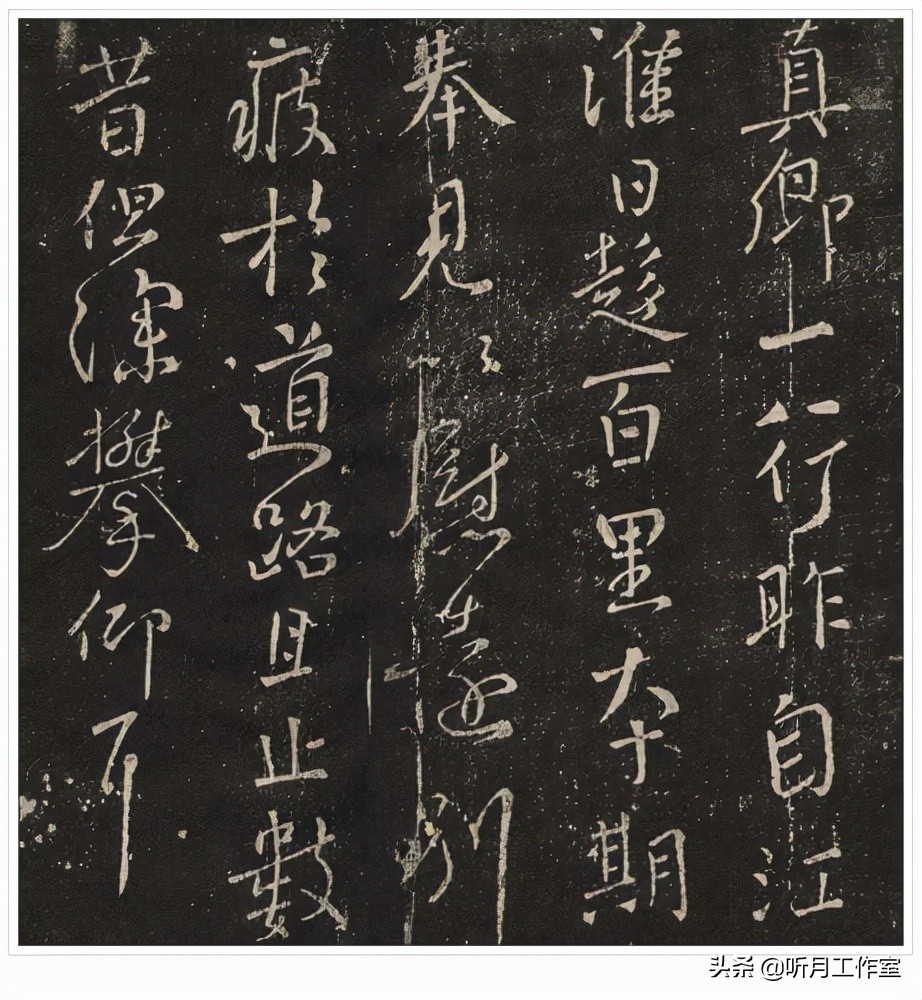 真卿一行昨自江
淮日趍百里夲期
奉見以慰別
疲於道路且止數
昔但深攀仰耳
头条 @听月工作室